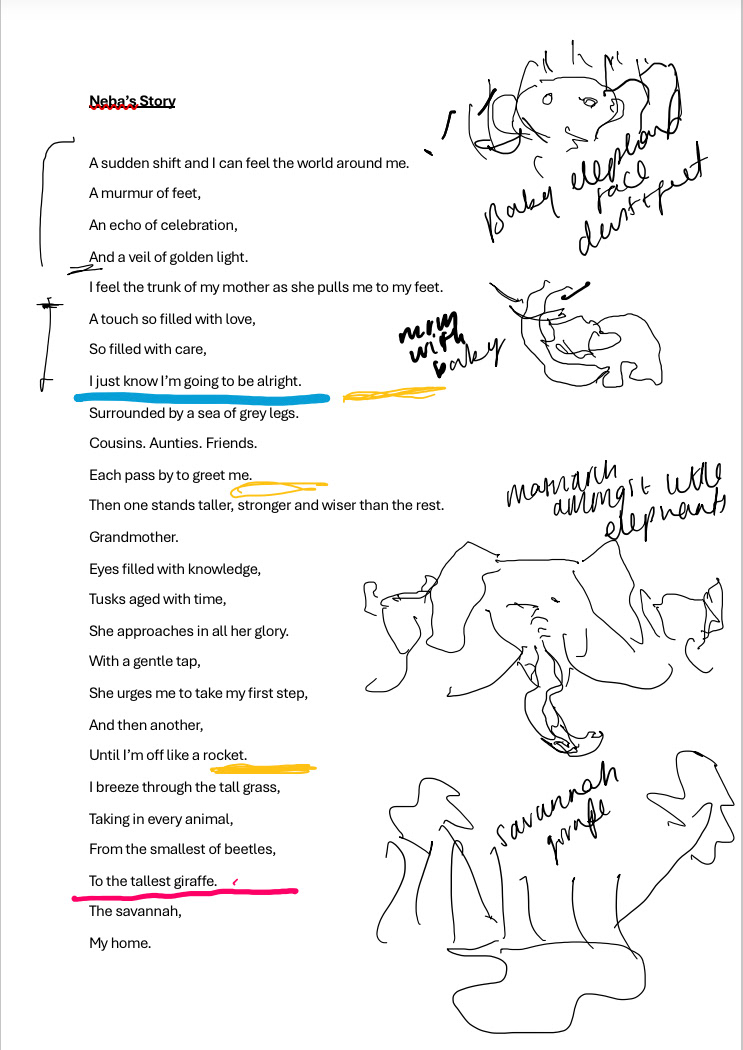 Neba's Story
A sudden shift and I can feel the world around me.
A murmur of feet,
An echo of celebration,
And a veil of golden light.
I feel the trunk of my mother as she pulls me to my feet.
A touch so filled with love,
So filled with care,
I just know I'm going to be alright.
Surrounded by a sea of grey legs.
Cousins. Aunties. Friends.
Each pass by to greet me.
Then one stands taller, stronger and wiser than the rest.
Grandmother.
Eyes filled with knowledge,
Tusks aged with time,
She approaches in all her glory.
With a gentle tap,
She urges me to take my first step,
And then another,
Until I'm off like a rocket.
I breeze through the tall grass,
Taking in every animal,
From the smallest of beetles,
To the tallest giraffe.
The savannah,
My home.
Baby elephant
face
dust + feet
mum
with
baby
matriarch
amongst little
elephants
savannah